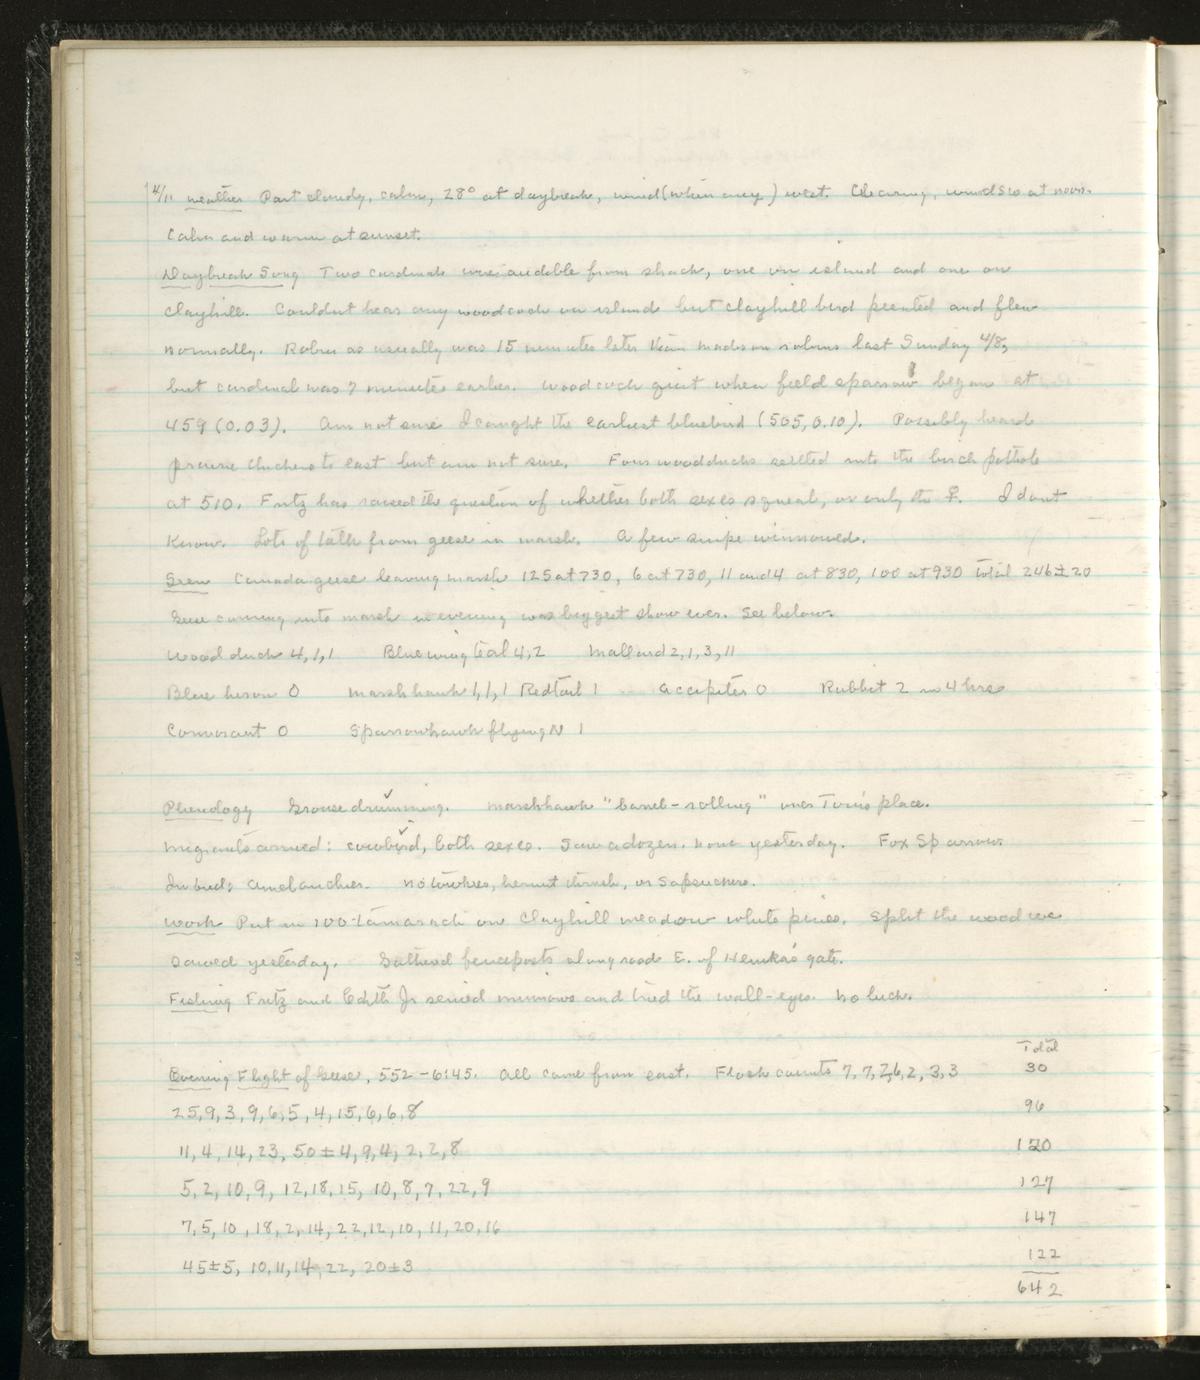 4/11 weather Part cloudy, calm, 28° at daybreak, wind (when any) west. Clearing, wind S10 at noon.
Calm and warm at sunset.
Daybreak Song Two cardinals were audible from shack, one on island and one on
clayhill. Couldnt hear any woodcock on island but clayhill bird peented and flew
normally. Robin as usually was 15 minutes later than madison robins last Sunday 4/8,
but cardinal was 7 minutes earlier. Woodcock quit when field sparrow began at
459 (0.03). Am not sure I caught the earliest bluebird (505, 0.10). Possibly heard
prairie chickens to east but am not sure. Four woodducks settled into the birch pothole
at 510. Fritz has raised the question of whether both sexes squeal, or only the ♀. I dont
know. Lots of talk from geese in marsh. A few snipe winnowed.
Seen Canada geese leaving marsh 125 at 730, 6 at 730, 11 and 4 at 830, 100 at 930 Total 246±20
Geese coming into marsh in evening was biggest show ever. See below.
Wood duck 4,1,1 Bluewing teal 4,2 Mallard 2,1,3,11
Blue heron 0 marsh hawk 1,1,1 Redtail 1 accipiter 0 Rabbit 2 in 4 hrs
Cormorant 0 Sparrowhawk flying N 1
Phenology Grouse drumming. marshhawk "barrel-rolling" over Tom's place.
Migrants arrived: cowbird, both sexes. Saw a dozen. none yesterday. Fox Sparrow.
In bud: amelanchier. no towhee, hermit thrush, or Sapsuckers.
Work Put in 100 tamarack on Clayhill meadow white pines. Split the wood we
sawed yesterday. Gathered fenceposts along road E. of Hemkes' gate.
Fishing Fritz and Edith Jr seined minnows and tried the wall-eyes. No luck.
Total
Evening Flight of Geese, 552 - 6:45. All came from east. Flock counts 7,7,2,6,2,3,3 30
25,9,3,9,6,5,4,15,6,6,8 96
11,4,14,23,50±4,9,4,2,2,8 120
5,2,10,9,12,18,15,10,8,7,22,9 127
7,5,10,18,2,14,22,12,10,11,20,16 147
45±5,10,11,14,22,20±3 122
642